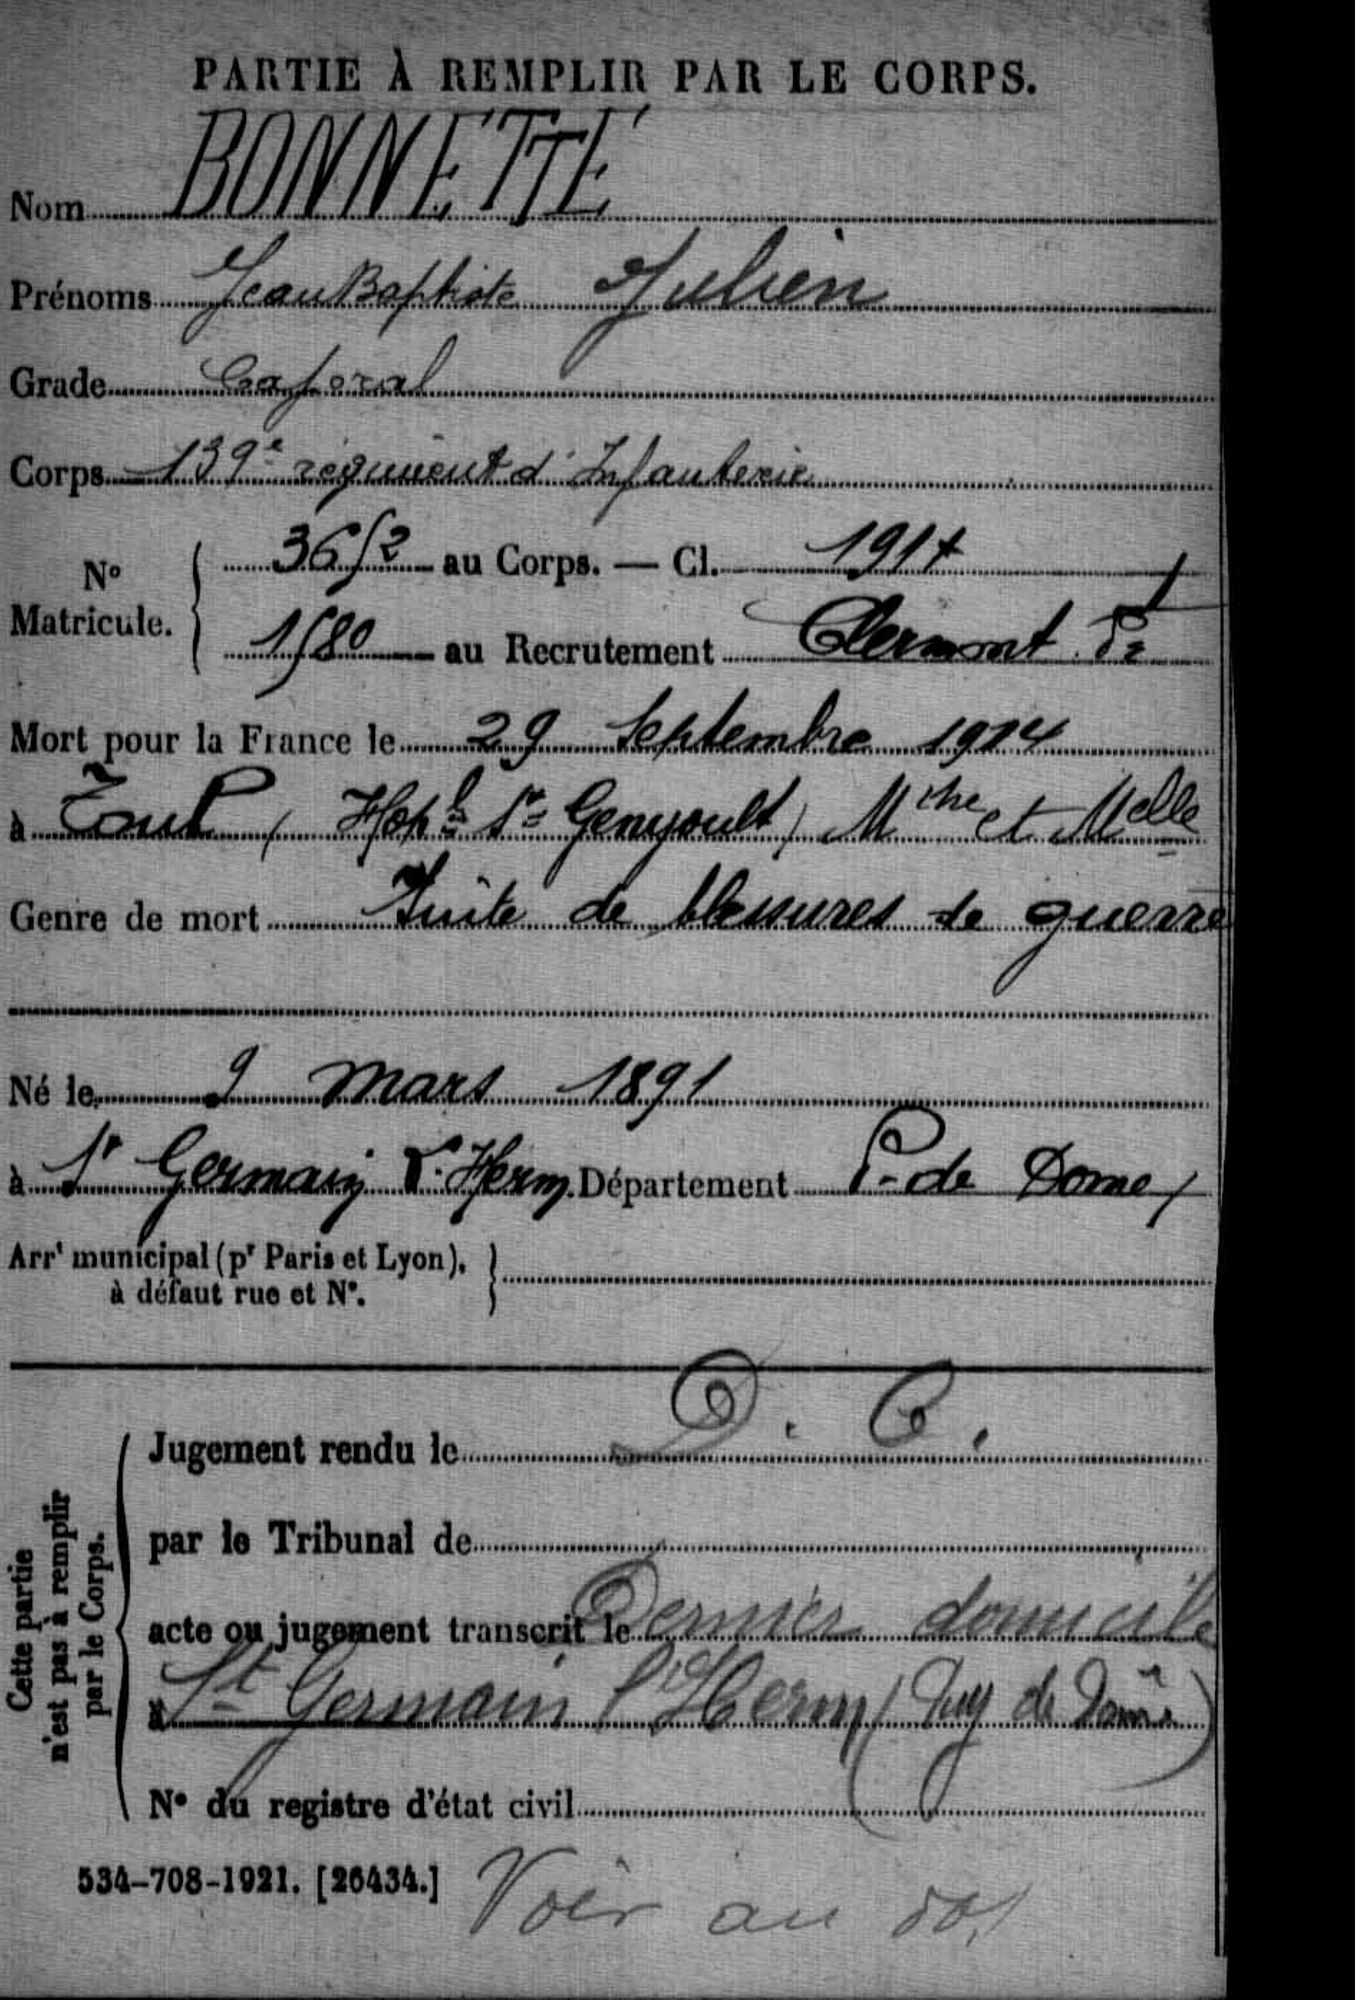 PARTIE À REMPLIR PAR LE CORPS.
Nom BONNETTE
Prénoms Jean Baptiste Julien
Grade Caporal
Corps 139e régiment d'Infanterie
No Matricule. 3652 au Corps. — Cl. 1911
1580 au Recrutement Clermont Fd
Mort pour la France le 29 Septembre 1914
à Toul (Hopl St Gengoult) Mthe et Melle
Genre de mort Suite de blessures de guerre
Né le 9 Mars 1891
à St Germain l'Herm Département P. de Dome
Arrt municipal (pr Paris et Lyon),
à défaut rue et No.
Cette partie n'est pas à remplir par le Corps.
Jugement rendu le D. C.
par le Tribunal de
acte ou jugement transcrit le Dernier domicile
à St Germain l'Herm (Puy de Dôme)
No du registre d'état civil
534-708-1921. [26434.] Voir au dos